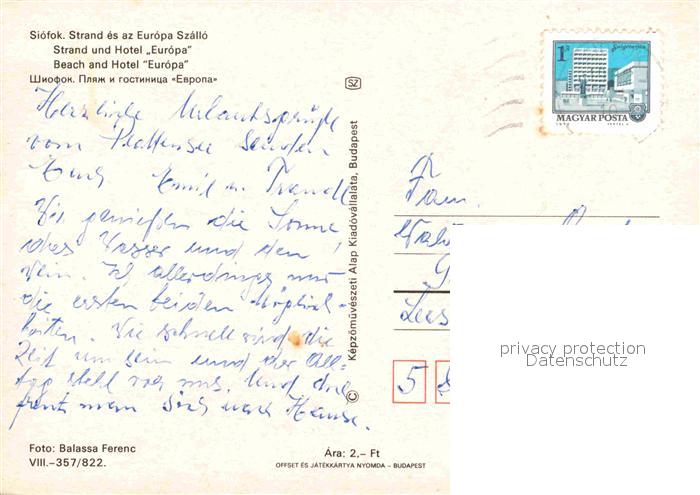 Siófok. Strand és az Európa Szálló
Strand und Hotel „Európa”
Beach and Hotel “Európa”
Шиофок. Пляж и гостиница «Европа»
Herzliche Urlaubsgrüße
vom Plattensee senden
Euch Emil u. Traudl
Wir genießen die Sonne
das Wasser und den
Wein. Ich allerdings nur
die ersten beiden Möglich-
keiten. Wie schnell wird die
Zeit um sein und der All-
tag steht vor uns. Und die
freut man sich nach Hause.
Foto: Balassa Ferenc
VIII.–357/822.
Ára: 2,– Ft
OFFSET ÉS JÁTÉKKÁRTYA NYOMDA – BUDAPEST
© Képzőművészeti Alap Kiadóvállalata, Budapest
SZ
1 Ft
MAGYAR POSTA
Fam.
5
privacy protection
Datenschutz